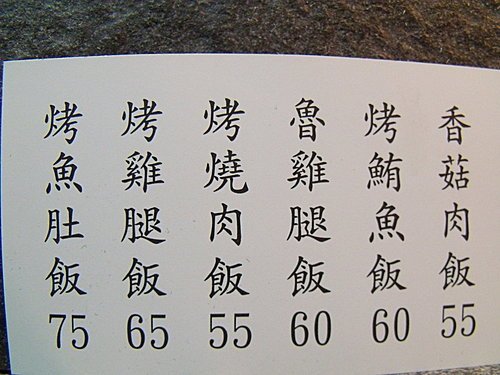 香菇肉飯55
烤鮪魚飯60
魯雞腿飯60
烤燒肉飯55
烤雞腿飯65
烤魚肚飯75